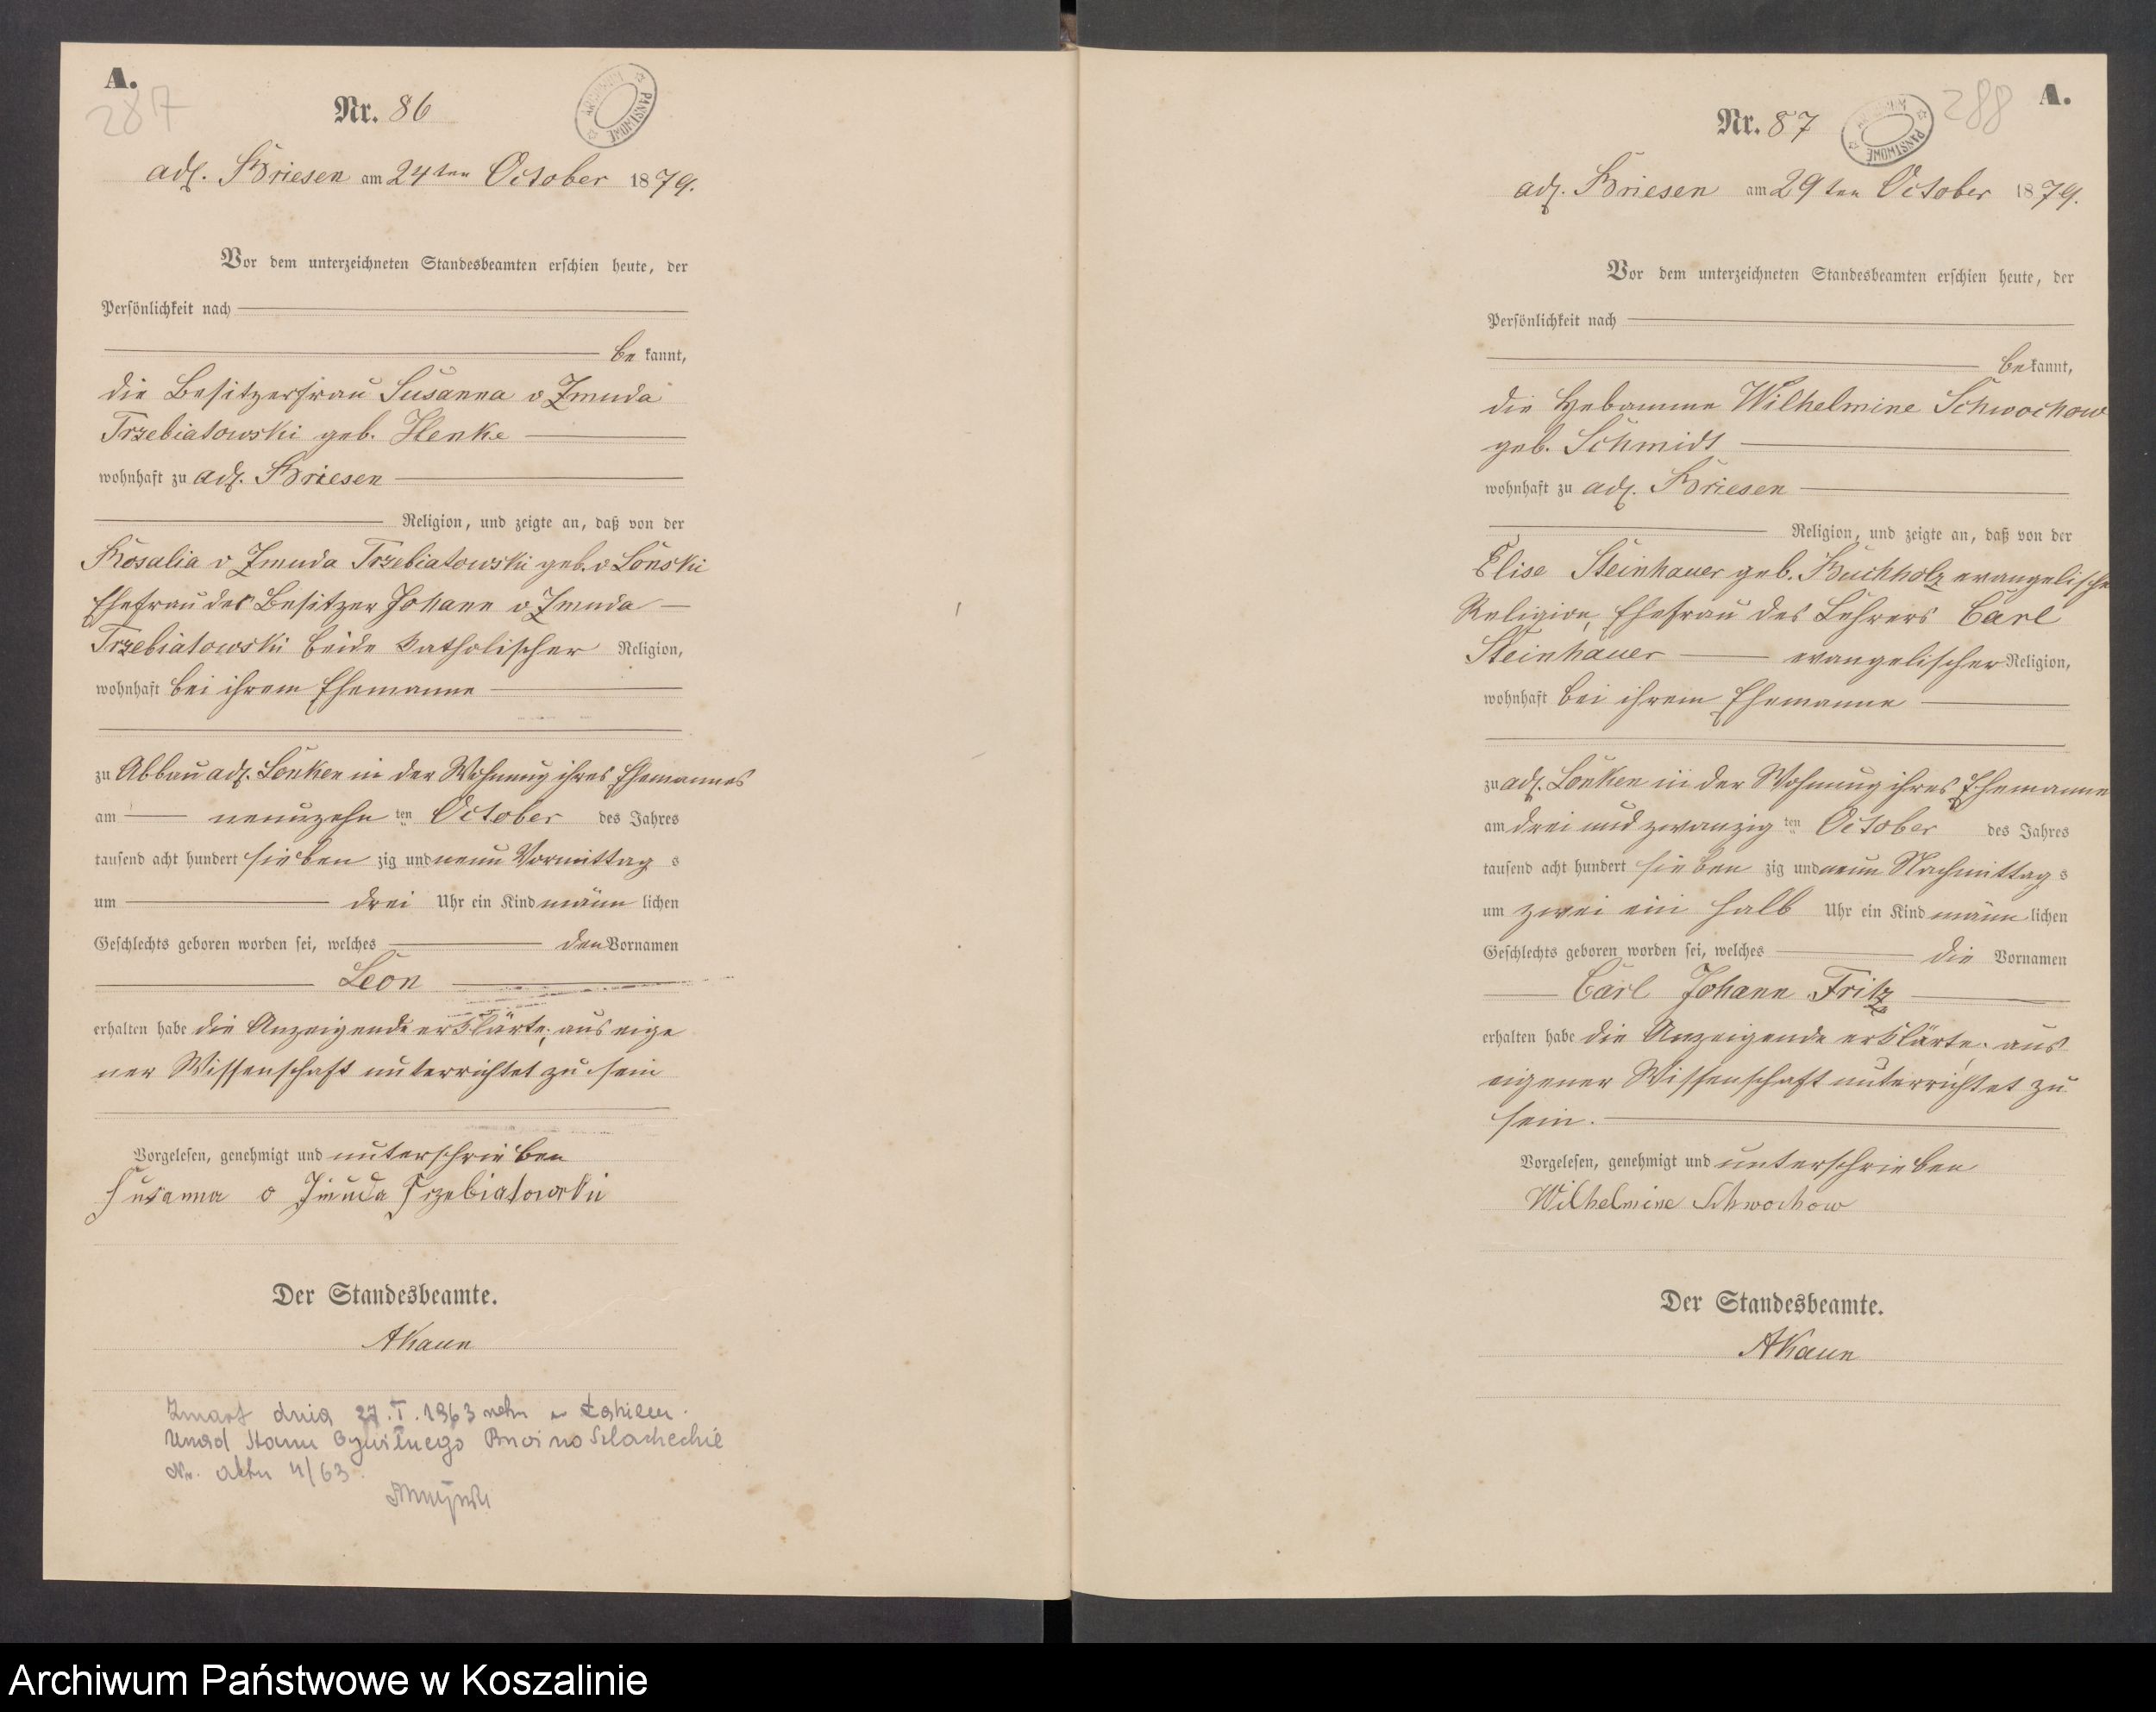 A.
287
Nr. 86
ARCHIWUM PAŃSTWOWE
adl. Briesen am 24ten October 1879.
Vor dem unterzeichneten Standesbeamten erschien heute, der
Persönlichkeit nach
be kannt,
die Besitzerfrau Susanna v Zmuda
Trzebiatowski geb. Henke
wohnhaft zu adl. Briesen
Religion, und zeigte an, daß von der
Rosalia v Zmuda Trzebiatowski geb. v Lonski
Ehefrau des Besitzer Johann v Zmuda
Trzebiatowski beide katholischer Religion,
wohnhaft bei ihrem Ehemanne
zu Abbau adl. Lonken in der Wohnung ihres Ehemannes
am neunzehn ten October des Jahres
tausend acht hundert sieben zig und neun Vormittag s
um drei Uhr ein Kind männ lichen
Geschlechts geboren worden sei, welches den Vornamen
Leon
erhalten habe die Anzeigende erklärte, aus eige
ner Wissenschaft unterrichtet zu sein
Vorgelesen, genehmigt und unterschrieben
Susanna v Zmuda Trzebiatowski
Der Standesbeamte.
AKaun
Zmarł dnia 27.I.1963 w
Urząd Stanu Cywilnego Brzeźno Szlacheckie
Nr. aktu 4/63.
A.
288
Nr. 87
ARCHIWUM PAŃSTWOWE
adl. Briesen am 29ten October 1879.
Vor dem unterzeichneten Standesbeamten erschien heute, der
Persönlichkeit nach
be kannt,
die Hebamme Wilhelmine Schwochow
geb. Schmidt
wohnhaft zu adl. Briesen
Religion, und zeigte an, daß von der
Elise Steinhauer geb. Buchholz evangelische
Religion, Ehefrau des Lehrers Carl
Steinhauer evangelischer Religion,
wohnhaft bei ihrem Ehemanne
zu adl. Lonken in der Wohnung ihres Ehemanne
am drei und zwanzig ten October des Jahres
tausend acht hundert sieben zig und neun Nachmittag s
um zwei ein halb Uhr ein Kind männ lichen
Geschlechts geboren worden sei, welches die Vornamen
Carl Johann Fritz
erhalten habe die Anzeigende erklärte, aus
eigener Wissenschaft unterrichtet zu
sein.
Vorgelesen, genehmigt und unterschrieben
Wilhelmine Schwochow
Der Standesbeamte.
AKaun
Archiwum Państwowe w Koszalinie